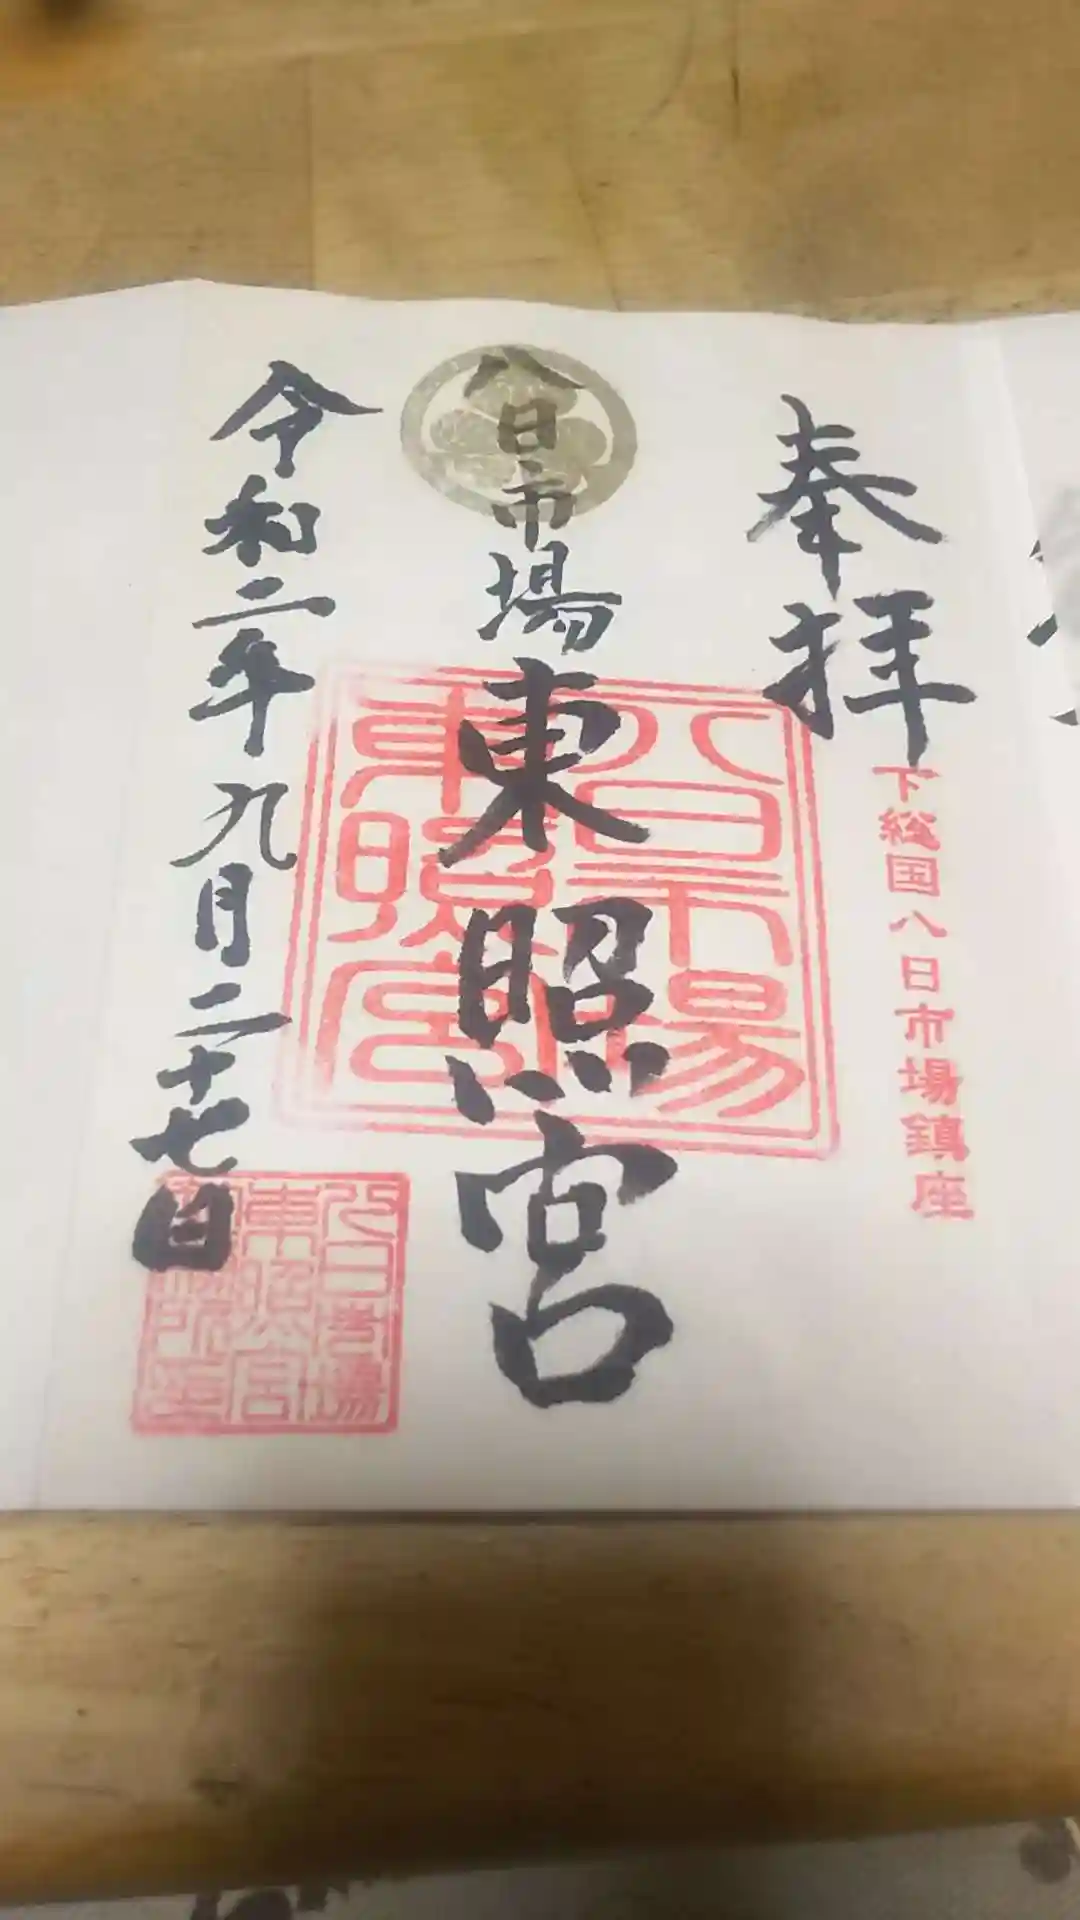 奉拝
下総国八日市場鎮座
八日市場東照宮
八日市場
東照宮
令和二年九月二十七日
八日市場
東照宮